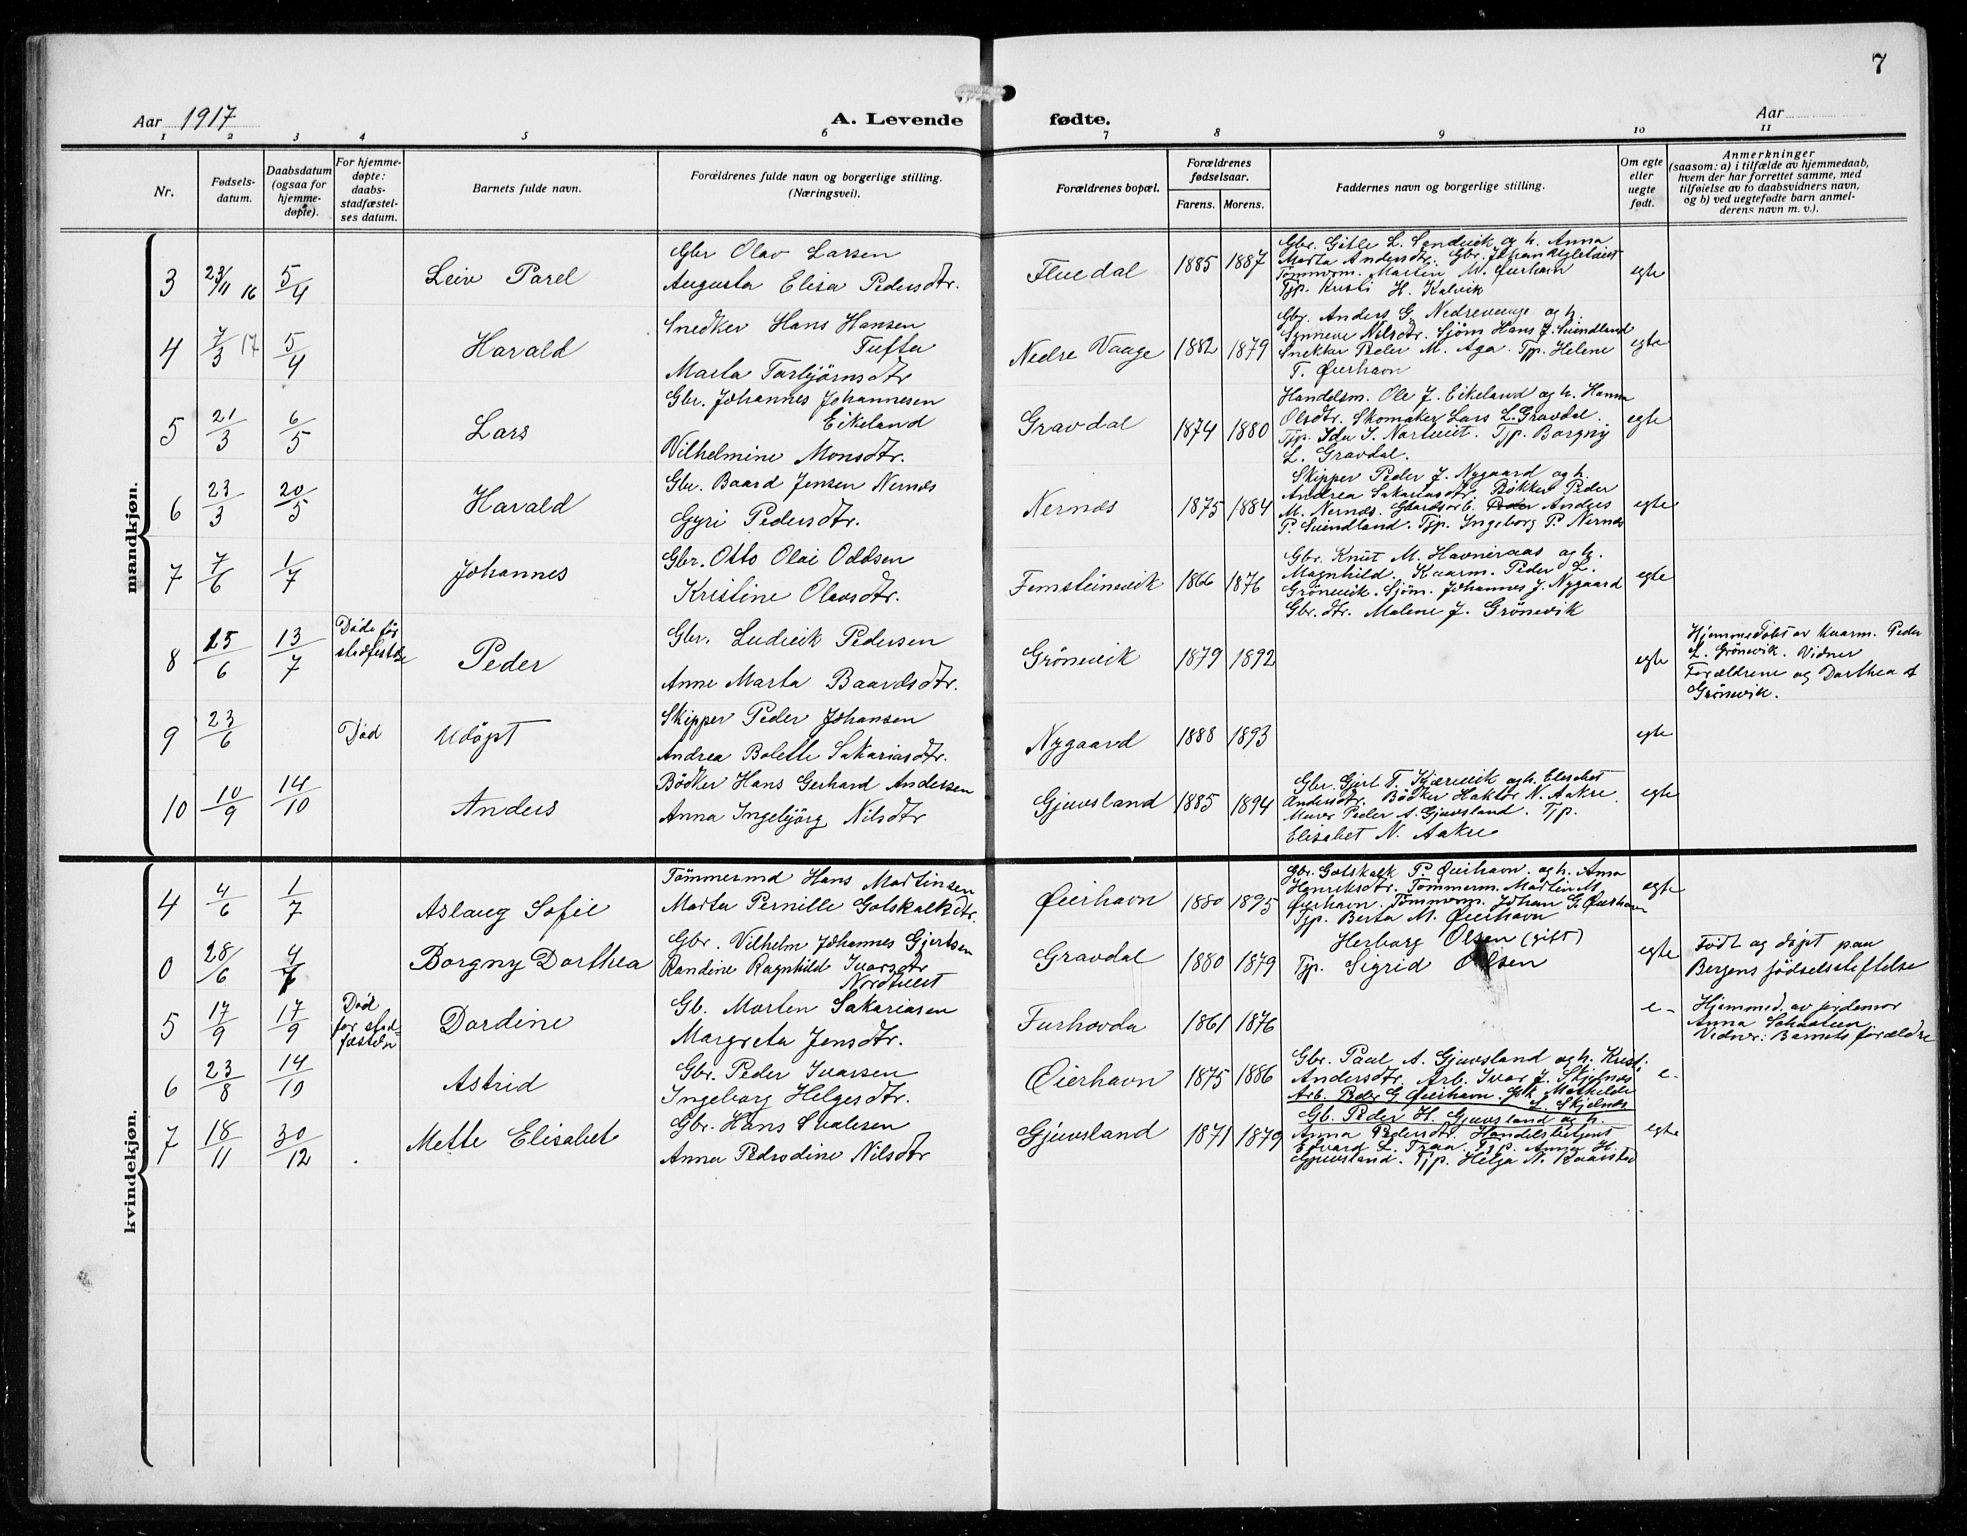 7
Aar 1917
A. Levende fødte.
Aar
1 2 3 4 5 6 7 8 9 10 11
Nr.
Fødsels-
datum.
Daabsdatum
(ogsaa for
hjemme-
døpte).
For hjemme-
døpte:
daabs-
stadfæstel-
ses datum.
Barnets fulde navn.
Forældrenes fulde navn og borgerlige stilling.
(Næringsvei).
Forældrenes bopæl.
Forældrenes
fødselsaar.
Farens. Morens.
Faddernes navn og borgerlige stilling.
Om egte
eller
uegte
født.
Anmerkninger
(saasom: a) i tilfælde av hjemmedaab,
hvem der har forrettet samme, med
tilføielse av to daabsvidners navn,
og b) ved uegtefødte barn anmel-
derens navn m. v.).
mandkjøn.
3 23/11 16 5/4 Leiv Parel
Gbr Olav Larsen
Augusta Elisa Pedersdtr.
Fluedal 1885 1887
Gbr. Gitle L. Sendvik og h. Anna
Marta Andersdtr. Gbr. Johan
Tömmerm. Martin M. Øierhavn
Tjp. Kristi H. Kalvik
egte
4 7/3 17 5/4 Harald
Snedker Hans Hansen
Tufta
Marta Torbjörnsdtr
Nedre Vaage 1882 1879
Gbr. Anders G. Nedrevaage og h.
Synneve Nilsdtr. Sjöm Hans J. Suindland
Snekker Peder M. Aga. Tjp. Helene
T. Øierhavn
egte
5 21/3 6/5 Lars
Gbr. Johannes Johannesen
Eikeland
Vilhelmine Monsdtr.
Gravdal 1874 1880
Handelsm. Ole J. Eikeland og h. Hanna
Olsdtr. Skomaker Lars L. Gravdal.
Tjp. Ida I. Nortveit. Tjp. Borgny
L. Gravdal.
egte
6 23/3 20/5 Harald
Gbr. Baard Jensen Nernæs
Gyri Pedersdtr.
Nernæs 1875 1884
Skipper Peder J. Nygaard og h.
Andrea Sakariasdtr. Bøkker Peder
M. Nernæs. Gaardsarb. Peder Anders
P. Suindland. Tjp. Ingeborg P. Nernæs
egte
7 7/6 1/7 Johannes
Gbr. Otto Olai Oddsen
Kristine Olavsdtr.
Femsteinevik 1866 1876
Gbr. Knut M. Havneraas og h.
Magnhild. Kvarm. Peder L.
Grönevik. Sjöm. Johannes J. Nygaard
Gbr. dtr. Malene J. Grönevik
egte
8 25/6 13/7 Döde för
stadfestelse
Peder
Gbr. Ludvik Pedersen
Anne Marta Baardsdtr.
Grönevik 1879 1892
egte
Hjemmedöbt av Kvarm. Peder
L. Grönevik. Vidner
Forældrene og Dorthea A
Grönevik.
9 23/6 Död Udöpt
Skipper Peder Johansen
Andrea Bolette Sakariasdtr.
Nygaard 1888 1893
egte
10 10/9 14/10 Anders
Bödker Hans Gerhard Andersen
Anna Ingebjörg Nilsdtr
Gjuvsland 1885 1894
Gbr. Gjert T. Kjærevik og h. Elisabet
Andersdtr. Bödker Haktor N. Aakre.
Murer Peder A. Gjuvsland. Tjp.
Elisabet N. Aakre
egte
kvindekjøn.
4 4/6 1/7 Aslaug Sofie
Tömmermd Hans Martinsen
Marta Pernille Gotskalkdtr.
Øierhavn 1880 1895
Gbr. Gotskalk P. Øierhavn. og h. Anna
Henriksdtr. Tömmerm. Martin M.
Øierhavn. Tömmerm. Johan G. Øierhavn
Tjp. Berta M. Øierhavn
egte
0 28/6 4/7 Borgny Dorthea
Gbr. Vilhelm Johannes Gjertsen
Randine Ragnhild Ivarsdtr
Nordtveit
Gravdal 1880 1879
Herborg Olsen (gift)
Tjp. Sigrid Olsen
egte
Født og døpt paa
Bergens fødselsstiftelse
5 17/9 17/9 Död
før stad-
fæsteln
Dordine
Gb. Morten Sakariasen
Margreta Jensdtr.
Furhovda 1861 1876
e-
Hjemmed. av jordemor
Anna
Vidner: Barnets forældre
6 23/8 14/10 Astrid
Gbr. Peder Ivarsen
Ingeborg Helgesdtr.
Øierhavn 1875 1886
Gbr. Paul A. Gjuvsland og h. Kristi
Andersdtr. Arb. Ivar J. Skjelnæs
Arb. Peder G. Øierhavn. Gk. Maskelde
L. Skjelnæs
e-
7 18/11 30/12 Mette Elisabet
Gbr. Hans Svalesen
Anna Pedrodine Nilsdtr
Gjuvsland 1871 1879
Gb. Peder H. Gjuvsland og h.
Anna Pedersdtr. Handelsbetjent
Edvard L. Traa. Tjp. Anna H.
Gjuvsland. Tjp. Helga N. Kvarstad
egte